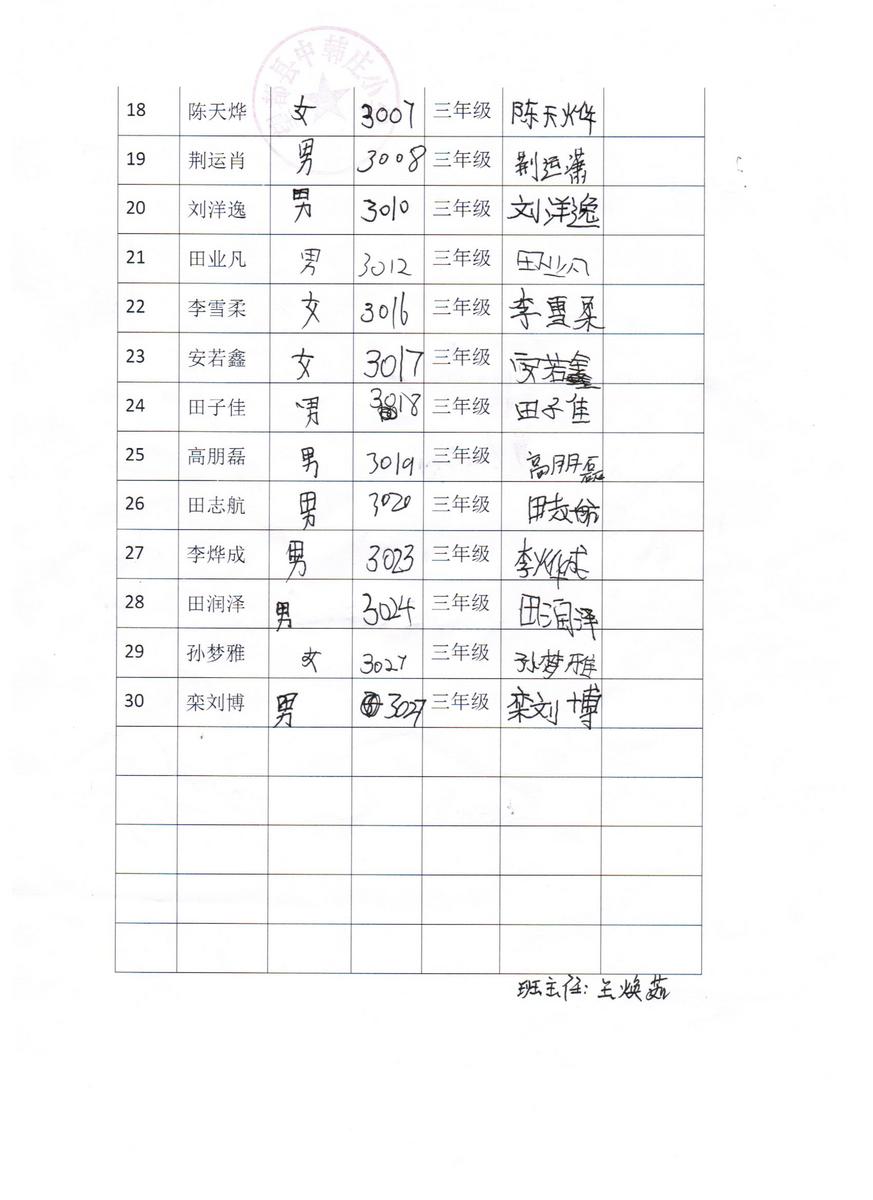 县中韩庄小
18 陈天烨 女 3007 三年级 陈天烨
19 荆运肖 男 3008 三年级 荆运潇
20 刘洋逸 男 3010 三年级 刘洋逸
21 田业凡 男 3012 三年级 田业凡
22 李雪柔 女 3016 三年级 李雪柔
23 安若鑫 女 3017 三年级 安若鑫
24 田子佳 男 3018 三年级 田子佳
25 高朋磊 男 3019 三年级 高朋磊
26 田志航 男 3020 三年级 田志航
27 李烨成 男 3023 三年级 李烨成
28 田润泽 男 3024 三年级 田润泽
29 孙梦雅 女 3027 三年级 孙梦雅
30 栾刘博 男 3027 三年级 栾刘博
班主任: 焕茹